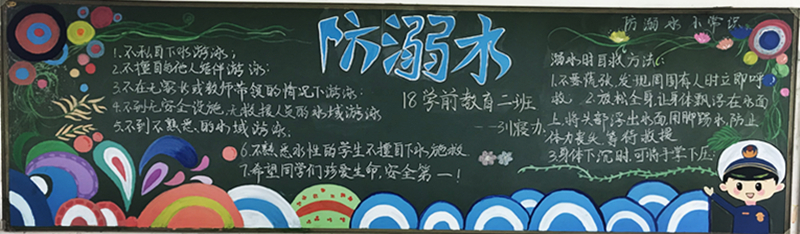 防溺水
18学前教育二班
1.不私自下水游泳;
2.不擅自与他人结伴游泳;
3.不在无家长或教师带领的情况下游泳
4.不到无安全设施,无救援人员的水域游泳
5.不到不熟悉的水域游泳
6.不熟悉水性的学生不擅自下水施救
7.希望同学们珍爱生命,安全第一!
防溺水小常识
溺水时自救方法:
1.不要慌张,发现周围有人时立即呼
救 2.放松全身,让身体飘浮在水面
上,将头部浮出水面用脚踢水,防止
体力丧失,等待救援
3.身体下沉时,可将手掌下压